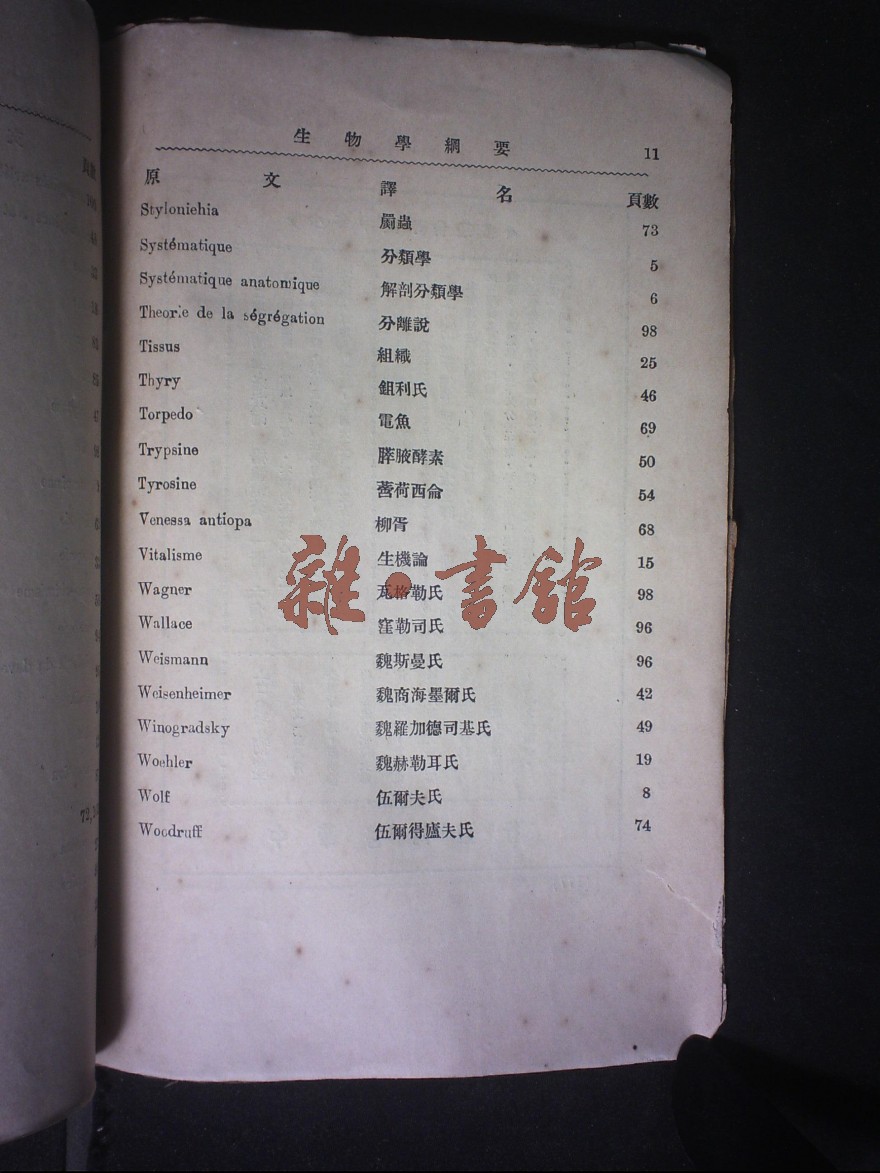 生物學綱要 11
原文 譯名 頁數
Styloniehia 屬蟲 73
Systématique 分類學 5
Systématique anatomique 解剖分類學 6
Theorie de la ségrégation 分離說 98
Tissus 組織 25
Thyry 鈕利氏 46
Torpedo 電魚 69
Trypsine 膵腋酵素 50
Tyrosine 荷西侖 54
Venessa antiopa 柳胥 68
Vitalisme 生機論 15
Wagner 瓦格勒氏 98
Wallace 窪勒司氏 96
Weismann 魏斯曼氏 96
Weisenheimer 魏商海墨爾氏 42
Winogradsky 魏羅加德司基氏 49
Woehler 魏赫勒耳氏 19
Wolf 伍爾夫氏 8
Woodruff 伍爾得廬夫氏 74
雜·書館